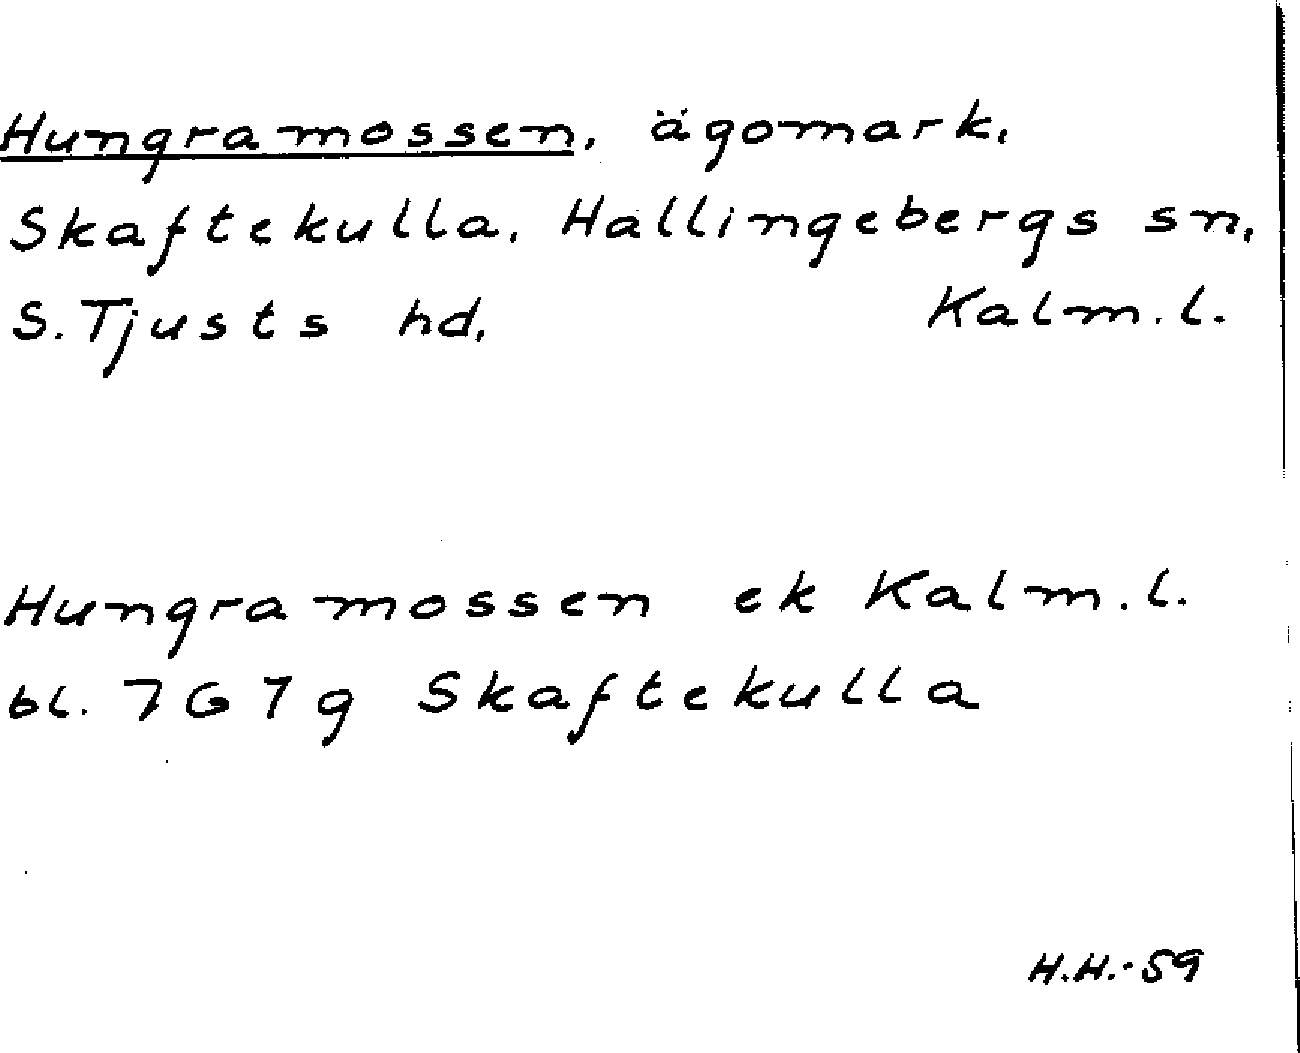 Hungramossen, ägomark,
Skaftekulla, Hallingebergs sn,
S. Tjusts hd, Kalm. l.
Hungramossen ek Kalm. l.
bl. 7G7g Skaftekulla
H.H.-59